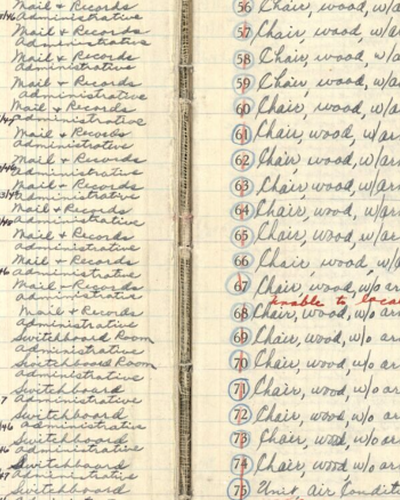 Mail & Records
Administrative
Mail & Records
Administrative
Mail & Records
Administrative
Mail & Records
Administrative
Mail & Records
Administrative
Mail & Records
Administrative
Mail & Records
Administrative
Mail & Records
Administrative
Mail & Records
Administrative
Mail & Records
Administrative
Mail & Records
Administrative
Mail & Records
Administrative
Mail & Records
Administrative
Switchboard Room
Administrative
Switchboard Room
Administrative
Switchboard
Administrative
Switchboard
Administrative
Switchboard
Administrative
Switchboard
Administrative
Switchboard
56 Chair, wood, w/a
57 Chair, wood, w/ar
58 Chair, wood, w/ar
59 Chair, wood, w/ar
60 Chair, wood, w/a
61 Chair, wood, w/arm
62 Chair, wood, w/ar
63 Chair, wood, w/ar
64 Chair, wood, w/ar
65 Chair, wood, w/ar
66 Chair, wood, w/ar
67 Chair, wood, w/o ar
Unable to loca
68 Chair, wood, w/o ar
69 Chair, wood, w/o ar
70 Chair, wood, w/o ar
71 Chair, wood, w/o ar
72 Chair, wood, w/o ar
73 Chair, wood, w/o ar
74 Chair, wood, w/o ar
75 Unit Air Condit